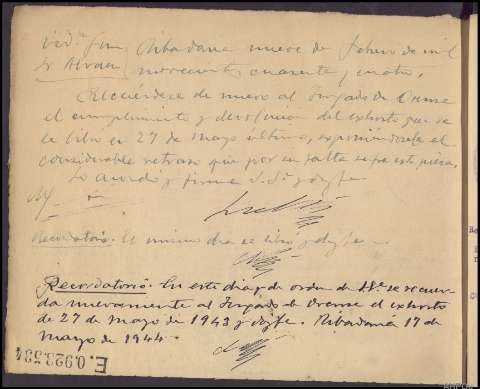 Ribadavia nueve de febrero de mil
novecientos cuarenta y cuatro.
Recuérdese de nuevo al Juzgado de Orense
el cumplimiento y devolución del exhorto que se
le libró en 27 de Mayo último, exponiéndosele el
considerable retraso que por su falta sufre esta pieza.
Lo acordó y firma S.Sª doy fe
Recordatorio. El mismo día se libró, doy fe
Recordatorio. En este día y de orden de S.Sª se recuer-
da nuevamente al Juzgado de Orense el exhorto
de 27 de Mayo de 1943 y doy fe. Ribadavia 17 de
Mayo de 1944.
E.0.923.534